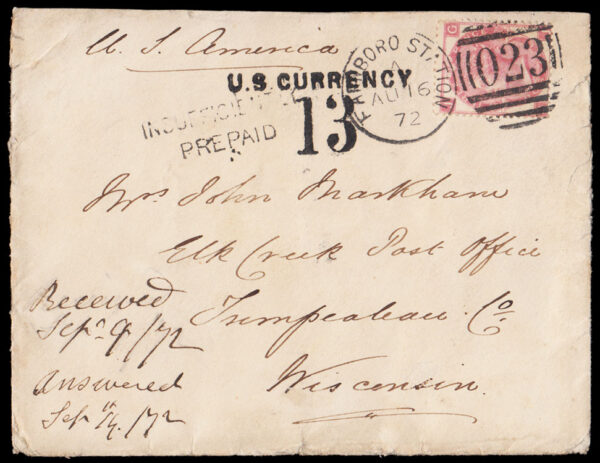 U. S. America
U.S. CURRENCY
13
INSUFFICIENTLY
PREPAID
FARNBORO STATION
A
AU 16
72
023
G
Mrs John Markham
Elk Creek Post Office
Trempealeau Co.
Wisconsin.
Received
Sept 9/72
Answered
Sep 11/72